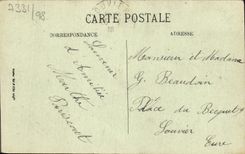 7331/98
CARTE POSTALE
CORRESPONDANCE
ADRESSE
Souvenir
d'Amitié
Marthe
Monsieur et Madame
G. Beaudoin
Place du Becquet
Louvier
Eure